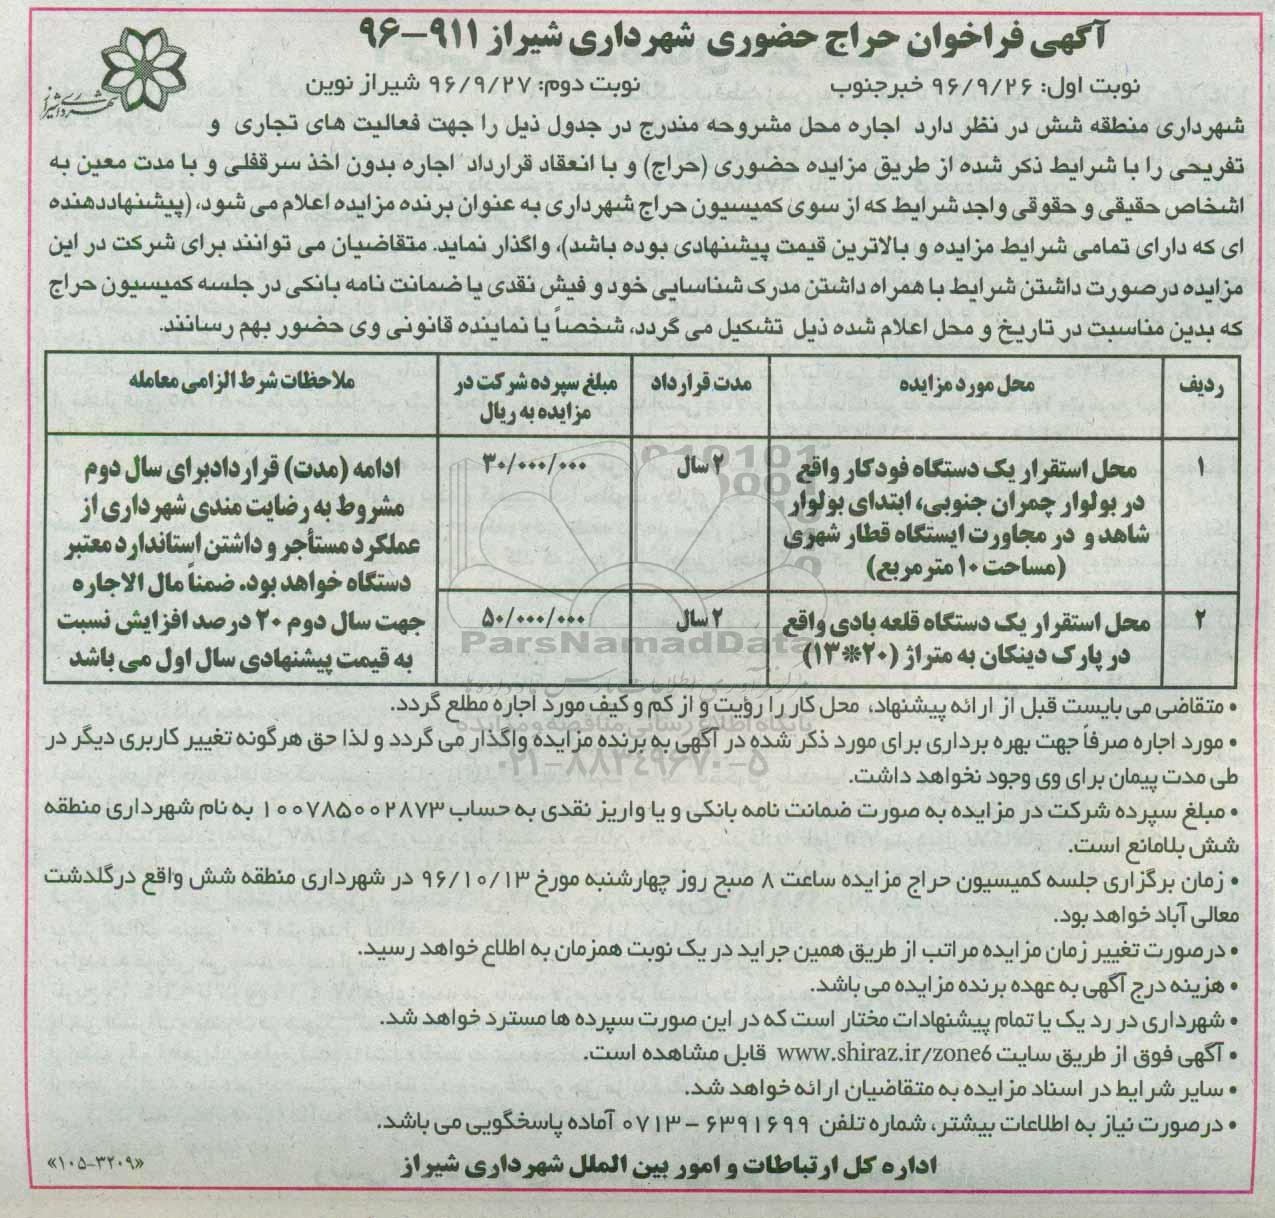 آگهی فراخوان حراج حضوری شهرداری شیراز ۹۱۱-۹۶
نوبت اول: ۹۶/۹/۲۶ خبرجنوب
نوبت دوم: ۹۶/۹/۲۷ شیراز نوین
شهرداری شیراز
شهرداری منطقه شش در نظر دارد اجاره محل مشروحه مندرج در جدول ذیل را جهت فعالیت های تجاری و
تفریحی را با شرایط ذکر شده از طریق مزایده حضوری (حراج) و با انعقاد قرارداد اجاره بدون اخذ سرقفلی و با مدت معین به
اشخاص حقیقی و حقوقی واجد شرایط که از سوی کمیسیون حراج شهرداری به عنوان برنده مزایده اعلام می شود، (پیشنهاددهنده
ای که دارای تمامی شرایط مزایده و بالاترین قیمت پیشنهادی بوده باشد)، واگذار نماید. متقاضیان می توانند برای شرکت در این
مزایده درصورت داشتن شرایط با همراه داشتن مدرک شناسایی خود و فیش نقدی یا ضمانت نامه بانکی در جلسه کمیسیون حراج
که بدین مناسبت در تاریخ و محل اعلام شده ذیل تشکیل می گردد، شخصاً یا نماینده قانونی وی حضور بهم رسانند.
ردیف
محل مورد مزایده
مدت قرارداد
مبلغ سپرده شرکت در
مزایده به ریال
ملاحظات شرط الزامی معامله
۱
محل استقرار یک دستگاه فودکار واقع
در بولوار چمران جنوبی، ابتدای بولوار
شاهد و در مجاورت ایستگاه قطار شهری
(مساحت ۱۰ مترمربع)
۲ سال
۳۰/۰۰۰/۰۰۰
ادامه (مدت) قراردادبرای سال دوم
مشروط به رضایت مندی شهرداری از
عملکرد مستأجر و داشتن استاندارد معتبر
دستگاه خواهد بود. ضمناً مال الاجاره
جهت سال دوم ۲۰ درصد افزایش نسبت
به قیمت پیشنهادی سال اول می باشد
۲
محل استقرار یک دستگاه قلعه بادی واقع
در پارک دینکان به متراژ (۲۰*۱۳)
۲ سال
۵۰/۰۰۰/۰۰۰
ParsNamadData
پایگاه اطلاع رسانی مناقصه و مزایده
۰۲۱-۸۸۳۴۹۶۷۰-۵
• متقاضی می بایست قبل از ارائه پیشنهاد، محل کار را رؤیت و از کم و کیف مورد اجاره مطلع گردد.
• مورد اجاره صرفاً جهت بهره برداری برای مورد ذکر شده در آگهی به برنده مزایده واگذار می گردد و لذا حق هرگونه تغییر کاربری دیگر در
طی مدت پیمان برای وی وجود نخواهد داشت.
• مبلغ سپرده شرکت در مزایده به صورت ضمانت نامه بانکی و یا واریز نقدی به حساب ۱۰۰۷۸۵۰۰۲۸۷۳ به نام شهرداری منطقه
شش بلامانع است.
• زمان برگزاری جلسه کمیسیون حراج مزایده ساعت ۸ صبح روز چهارشنبه مورخ ۹۶/۱۰/۱۳ در شهرداری منطقه شش واقع درگلدشت
معالی آباد خواهد بود.
• درصورت تغییر زمان مزایده مراتب از طریق همین جراید در یک نوبت همزمان به اطلاع خواهد رسید.
• هزینه درج آگهی به عهده برنده مزایده می باشد.
• شهرداری در رد یک یا تمام پیشنهادات مختار است که در این صورت سپرده ها مسترد خواهد شد.
• آگهی فوق از طریق سایت www.shiraz.ir/zone6 قابل مشاهده است.
• سایر شرایط در اسناد مزایده به متقاضیان ارائه خواهد شد.
• درصورت نیاز به اطلاعات بیشتر، شماره تلفن ۶۳۹۱۶۹۹ - ۰۷۱۳ آماده پاسخگویی می باشد.
اداره کل ارتباطات و امور بین الملل شهرداری شیراز
«۱۰۵-۳۲۰۹»